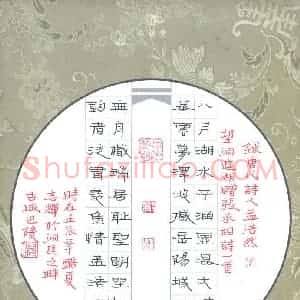 錄唐詩人孟浩然
望洞庭湖贈張丞相詩一首
八月湖水平涵虛混太
蒸雲夢澤波撼岳陽城
無舟楫端居恥聖明
者徒有羨魚情孟
時在壬辰年盛夏
於洞庭之畔
古城巴陵
Shufaziliao.com